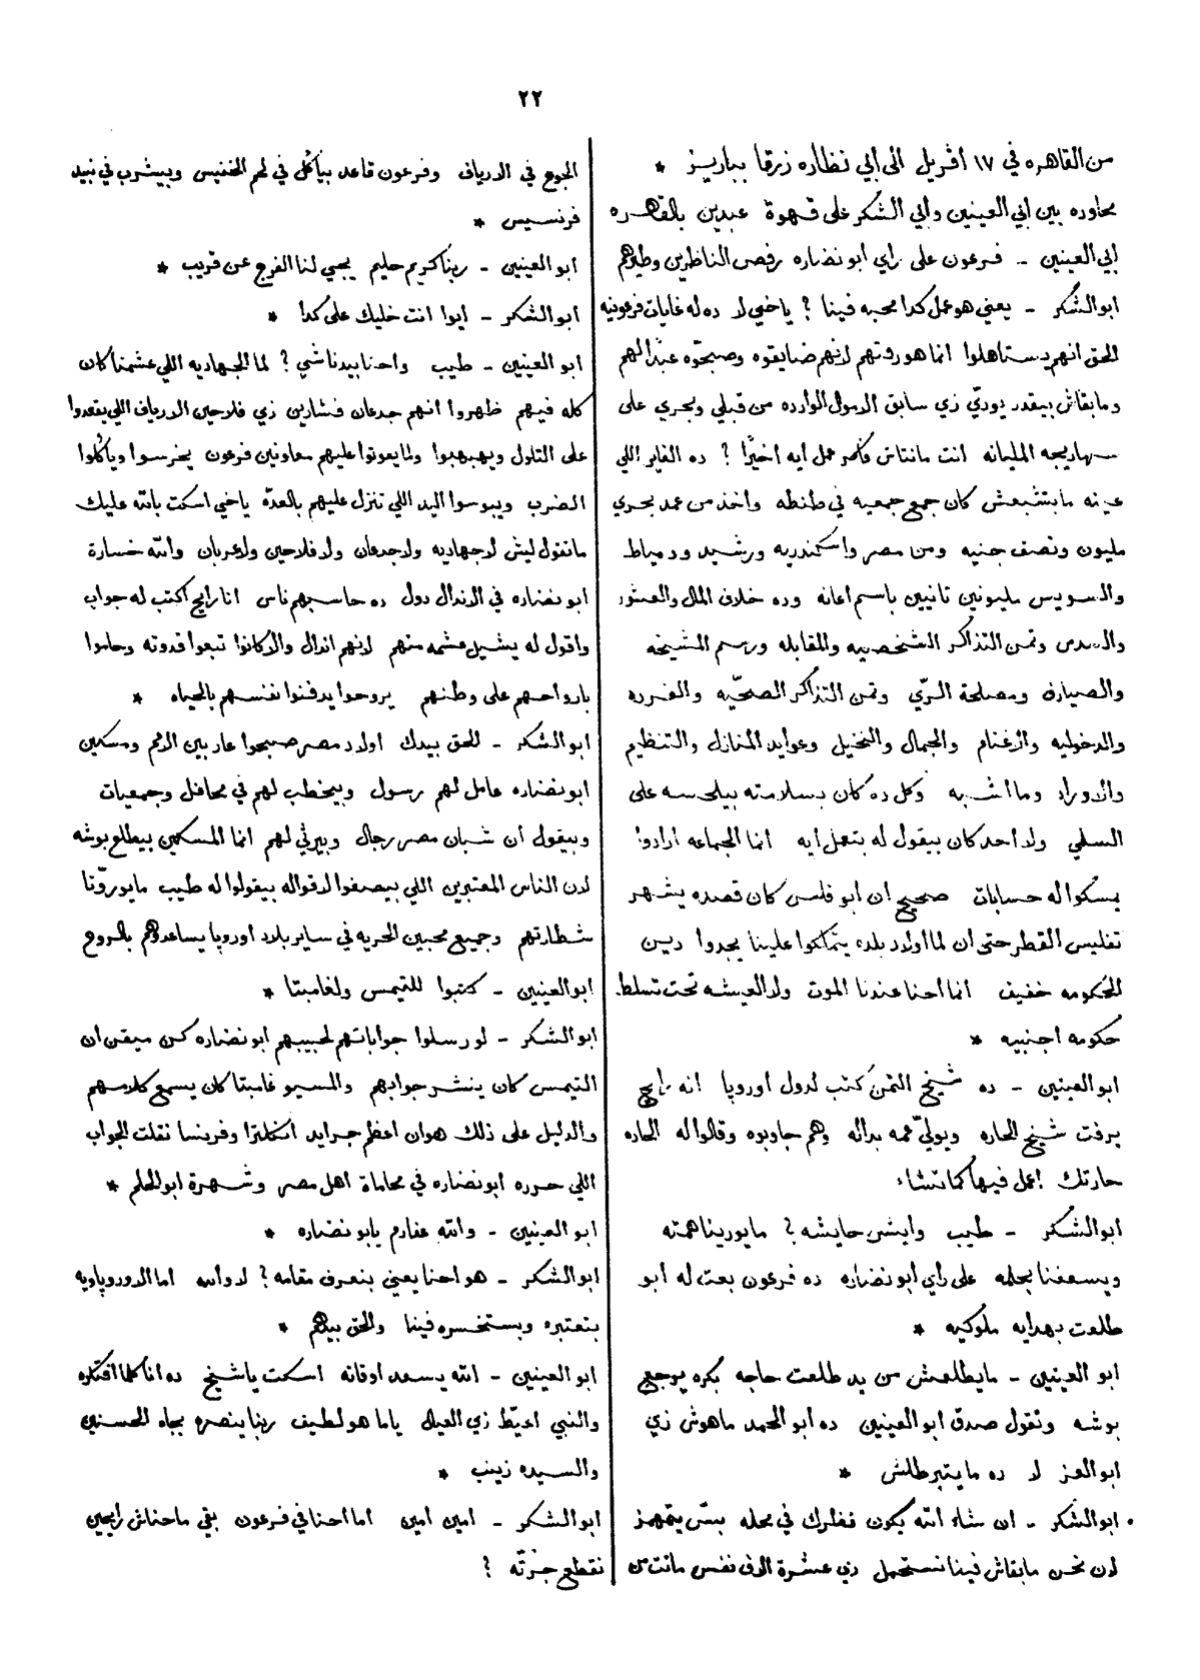 ٢٢
من القاهره في ١٧ أفريل الى ابي نظاره زرقا بباريز *
محاوره بين ابي العينين وابي الشكر على قهوة عبدين بالقاهره
ابي العينين - فرعون على راي ابو نضاره رفص الناظرين وطيرهم
ابو الشكر - يعني هو عمل كدا محبه فينا ? ياخي لا ده له غايات فرعونيه
الحق انهم يستاهلوا انما هو رفتهم لانهم ضايقوه وصبحوه عبد الهم
ومابقاش بيقدر يودي زي سابق الاموال الوارده من قبلي وبحري على
سهاريجه المليانه انت مانتاش فاكر عمل ايه اخيرًا ? ده الفاير اللي
عينه مابتشبعش كان جمع جمعيه في طنطه واخذ من عمد بحري
مليون ونصف جنيه ومن مصر واسكندريه ورشيد ودمياط
والسويس مليونين تانيين باسم اعانه وده خلاف المال والعشور
والسدس وتمن التذاكر الشخصيه والمقابله ورسم المشيخه
والصيارف ومصلحة الري وتمن التذاكر الصحّيه والفرده
والدخوليه والاغنام والجمال والنخيل وعوايد المنازل والتنظيم
والاوراد وما أشبه وكل ده كان بسلامته بيلحسه على
السلمي ولا احد كان بيقول له بتعمل ايه انما الجماعه ارادوا
يمسكوا له حسابات صحيح ان ابو فلس كان قصده يشهر
تفليس القطر حتى ان لما اولاد بلده يتملكوا علينا يجدوا دين
الحكومه خفيف انما احنا عندنا الموت ولا العيشه تحت تسلط
حكومه اجنبيه *
ابو العينين - ده شيخ التمن كتب لدول اوروپا انه رايح
يرفت شيخ الحاره ويولي عمه بداله وهم جاوبوه وقالوا له الحاره
حارتك اعمل فيها كما تشاء
ابو الشكر - طيب وايش حايشه ? مايورينا همته
ويسعفنا بحلمه على راي ابو نضاره ده فرعون بعت له ابو
طلعت بهدايه ملوكيه *
ابو العينين - مايطلعش من يد طلعت حاجه بكره يرجع
بوشه وتقول صدق ابو العينين ده ابو الحمد ماهوش زي
ابو العز لا ده مايتبرطلش *
ابو الشكر - ان شاء الله يكون نظرك في محله بسّ يتمهمز
لان نحن مابقاش فينا نستحمل دي عشرة الاف نفس ماتت من
الجوع في الارياف وفرعون قاعد بيأكل في لحم الخنفيس وبيشرب في نبيد
فرنسيس *
ابو العينين - ربنا كريم حليم يجي لنا الفرج عن قريب *
ابو الشكر - ايوا انت خليك على كدا *
ابو العينين - طيب واحنا بيدنا شي ? لما الجهاديه اللي عشمنا كان
كله فيهم ظهروا انهم جدعان فشارين زي فلاحين الارياف اللي يقعدوا
على التلول ويهبهبوا ولما يعوتوا عليهم معاونين فرعون يخرسوا وياكلوا
الضرب ويبوسوا اليد اللي تنزل عليهم بالعدّه ياخي اسكت بالله عليك
ماتقول ليش لا جهاديه ولا جدعان ولا فلاحين ولا عربان والله خسارة
ابو نضاره في الاندال دول ده حاسبهم ناس انا رايح اكتب له جواب
واقول له يشيل عشمه منهم لانهم اندال والا كانوا تبعوا قدوته وحاموا
بارواحهم على وطنهم يروحوا يدفنوا نفسهم بالحياه *
ابو الشكر - الحق بيدك اولاد مصر صبحوا عار بين الامم ومسكين
ابو نضاره عامل لهم رسول وبيخطب لهم في محافل وجمعيات
وبيقول ان شبان مصر رجال وبيرثي لهم انما المسكين بيطلع بوشه
لان الناس المعتبرين اللي بيصغوا لاقواله بيقولوا له طيب مايورّونا
شطارتهم وجميع محبين الحريه في ساير بلاد اوروپا يساعدوهم بالروح
ابو العينين - كتبوا للتيمس ولغامبتا *
ابو الشكر - لو رسلوا جواباتهم لحبيبهم ابو نضاره كن ميقن ان
التيمس كان ينشر جوابهم والمسيو غامبتا كان يسمع كلامهم
والدليل على ذلك هو ان اعظم جرايد انكلترا وفرينسا نقلت الجواب
اللي حرره ابو نضاره في محاماة اهل مصر وشهرة ابو الحلم *
ابو العينين - والله عفارم يابو نضاره *
ابو الشكر - هو احنا يعني بنعرف مقامه ? لا والله اما الاوروپاويه
بتعتبره وبستخسره فينا والحق بيدهم *
ابو العينين - الله يسعد اوقاته اسكت ياشيخ ده انا كلما افتكره
والنبي اعيّط زي العيال ياما هو لطيف ربنا ينصره بجاه الحسنين
والسيده زينب *
ابو الشكر - امين امين اما احنا في فرعون بقي ماحناش رايحين
نقطع جزرّته ?